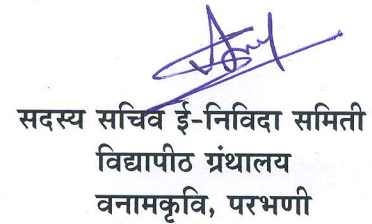 सदस्य सचिव ई-निविदा समिती
विद्यापीठ ग्रंथालय
वनामकृवि, परभणी